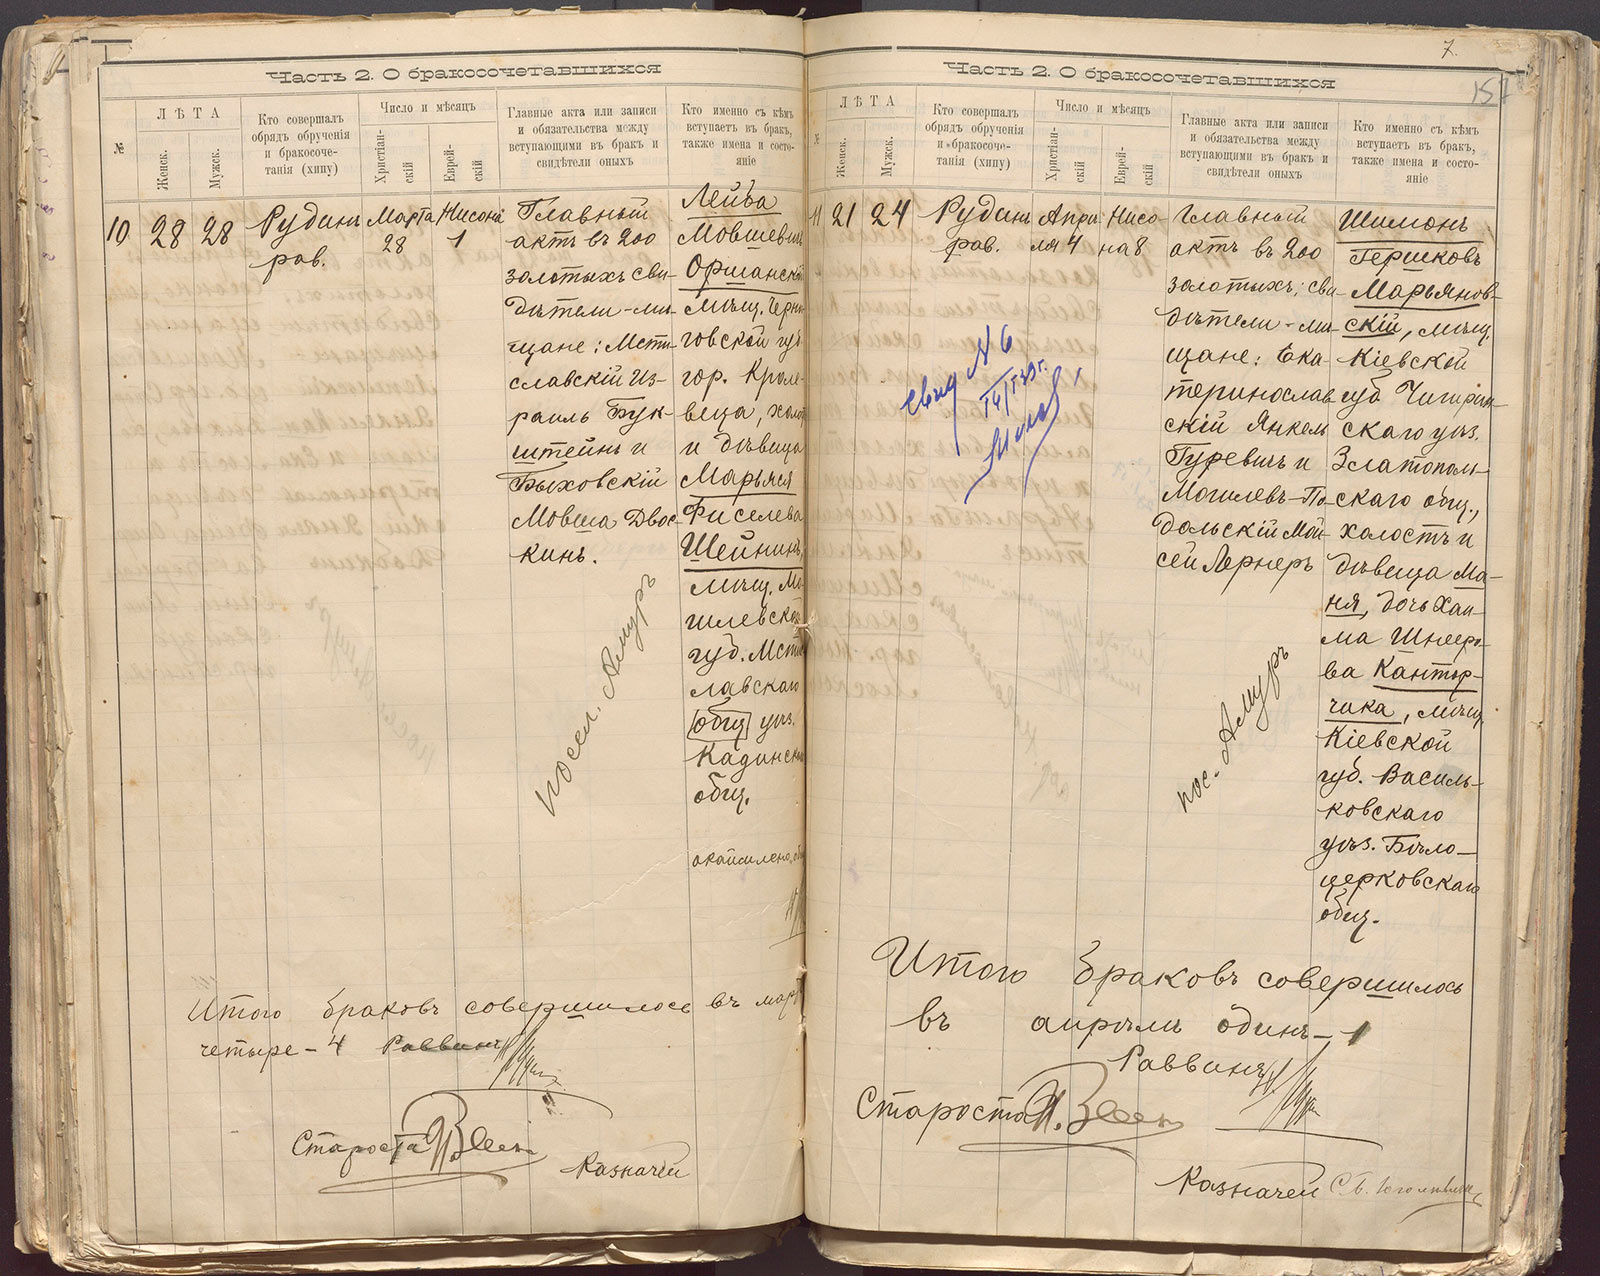 Часть 2. О бракосочетавшихся
№
ЛѢТА
Женск.
Мужск.
Кто совершалъ
обрядъ обрученія
и бракосоче-
танія (хипу)
Число и мѣсяцъ
Христіан-
скій
Еврей-
скій
Главные акта или записи
и обязательства между
вступающими въ бракъ и
свидѣтели оныхъ
Кто именно съ кѣмъ
вступаетъ въ бракъ,
также имена и состо-
яніе
10
28
28
Рудинъ
рав.
Марта
28
Нисона
1
Главный
актъ въ 200
золотыхъ сви-
дѣтели - мѣ-
щане: Мсти-
славскій Из-
раиль Бук-
штейнъ и
Быховскій
Мовша Двос-
кинъ.
Лейба
Мовшевичъ
Оршанскій
мѣщ. Черни-
говской губ
гор. Кроле-
веца, холост
и дѣвица
Марьяся
Фиселева
Шейнинъ,
мѣщ. Мо-
гилевской
губ. Мсти-
лавскаго
общ уѣз.
Кадинскаго
общ.
посел. Амуръ
Итого браковъ совершилось въ мартѣ
четыре - 4 Раввинъ
Староста
Казначей
7.
157
Часть 2. О бракосочетавшихся
№
ЛѢТА
Женск.
Мужск.
Кто совершалъ
обрядъ обрученія
и бракосоче-
танія (хипу)
Число и мѣсяцъ
Христіан-
скій
Еврей-
скій
Главные акта или записи
и обязательства между
вступающими въ бракъ и
свидѣтели оныхъ
Кто именно съ кѣмъ
вступаетъ въ бракъ,
также имена и состо-
яніе
11
21
24
Рудинъ
рав.
Апрѣ-
ля 4
Нисо-
на 8
Главный
актъ въ 200
золотыхъ; сви-
дѣтели - мѣ-
щане: Ека-
теринослав
скій Янкель
Гуревичъ и
Могилевъ-По-
дольскій Мой-
сей Лернеръ
Шимонъ
Гершковъ
Марьянов-
скій, мѣщ.
Кіевской
губ Чигирин-
скаго уѣз.
Златополь-
скаго общ.,
холостъ и
дѣвица Ма-
ня, дочь Хаи-
ма Шнееро-
ва Кантор-
чика, мѣщ
Кіевской
губ. Василь-
ковскаго
уѣз. Бѣло-
церковскаго
общ.
свид N 6
пос. Амуръ
Итого браковъ совершилось
въ апрѣлѣ одинъ - 1
Раввинъ
Староста
Казначей